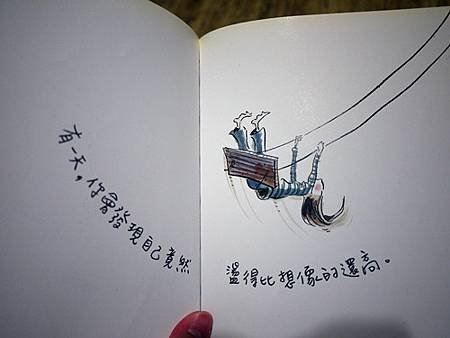 有一天，你會發現自己竟然
盪得比想像的還高。